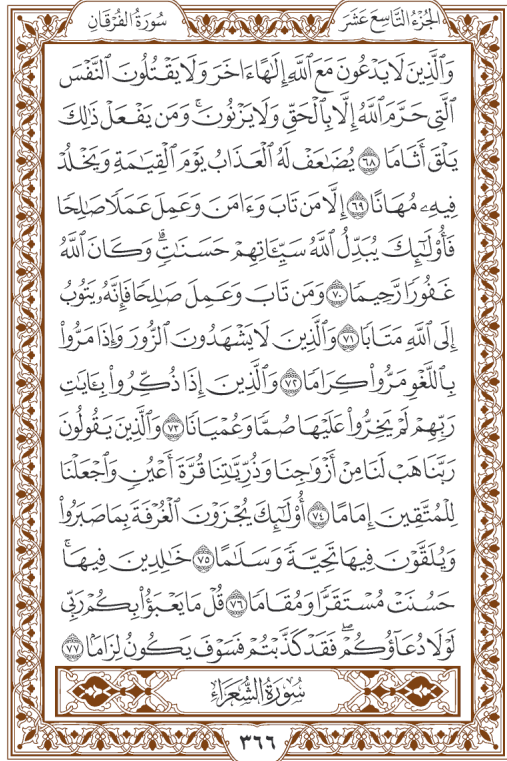 الجُزْءُ التَّاسِعَ عَشَرَ
سُورَةُ الفُرْقَانِ
وَٱلَّذِينَ لَا يَدْعُونَ مَعَ ٱللَّهِ إِلَٰهًا ءَاخَرَ وَلَا يَقْتُلُونَ ٱلنَّفْسَ
ٱلَّتِي حَرَّمَ ٱللَّهُ إِلَّا بِٱلْحَقِّ وَلَا يَزْنُونَۚ وَمَن يَفْعَلْ ذَٰلِكَ
يَلْقَ أَثَامًا ٦٨ يُضَٰعَفْ لَهُ ٱلْعَذَابُ يَوْمَ ٱلْقِيَٰمَةِ وَيَخْلُدْ
فِيهِۦ مُهَانًا ٦٩ إِلَّا مَن تَابَ وَءَامَنَ وَعَمِلَ عَمَلًا صَٰلِحًا
فَأُو۟لَٰٓئِكَ يُبَدِّلُ ٱللَّهُ سَيِّـَٔاتِهِمْ حَسَنَٰتٍۗ وَكَانَ ٱللَّهُ
غَفُورًا رَّحِيمًا ٧٠ وَمَن تَابَ وَعَمِلَ صَٰلِحًا فَإِنَّهُۥ يَتُوبُ
إِلَى ٱللَّهِ مَتَابًا ٧١ وَٱلَّذِينَ لَا يَشْهَدُونَ ٱلزُّورَ وَإِذَا مَرُّوا۟
بِٱللَّغْوِ مَرُّوا۟ كِرَامًا ٧٢ وَٱلَّذِينَ إِذَا ذُكِّرُوا۟ بِـَٔايَٰتِ
رَبِّهِمْ لَمْ يَخِرُّوا۟ عَلَيْهَا صُمًّا وَعُمْيَانًا ٧٣ وَٱلَّذِينَ يَقُولُونَ
رَبَّنَا هَبْ لَنَا مِنْ أَزْوَٰجِنَا وَذُرِّيَّٰتِنَا قُرَّةَ أَعْيُنٍ وَٱجْعَلْنَا
لِلْمُتَّقِينَ إِمَامًا ٧٤ أُو۟لَٰٓئِكَ يُجْزَوْنَ ٱلْغُرْفَةَ بِمَا صَبَرُوا۟
وَيُلَقَّوْنَ فِيهَا تَحِيَّةً وَسَلَٰمًا ٧٥ خَٰلِدِينَ فِيهَاۚ
حَسُنَتْ مُسْتَقَرًّا وَمُقَامًا ٧٦ قُلْ مَا يَعْبَؤُا۟ بِكُمْ رَبِّي
لَوْلَا دُعَآؤُكُمْۖ فَقَدْ كَذَّبْتُمْ فَسَوْفَ يَكُونُ لِزَامًۢا ٧٧
سُورَةُ الشُّعَرَاءِ
٣٦٦